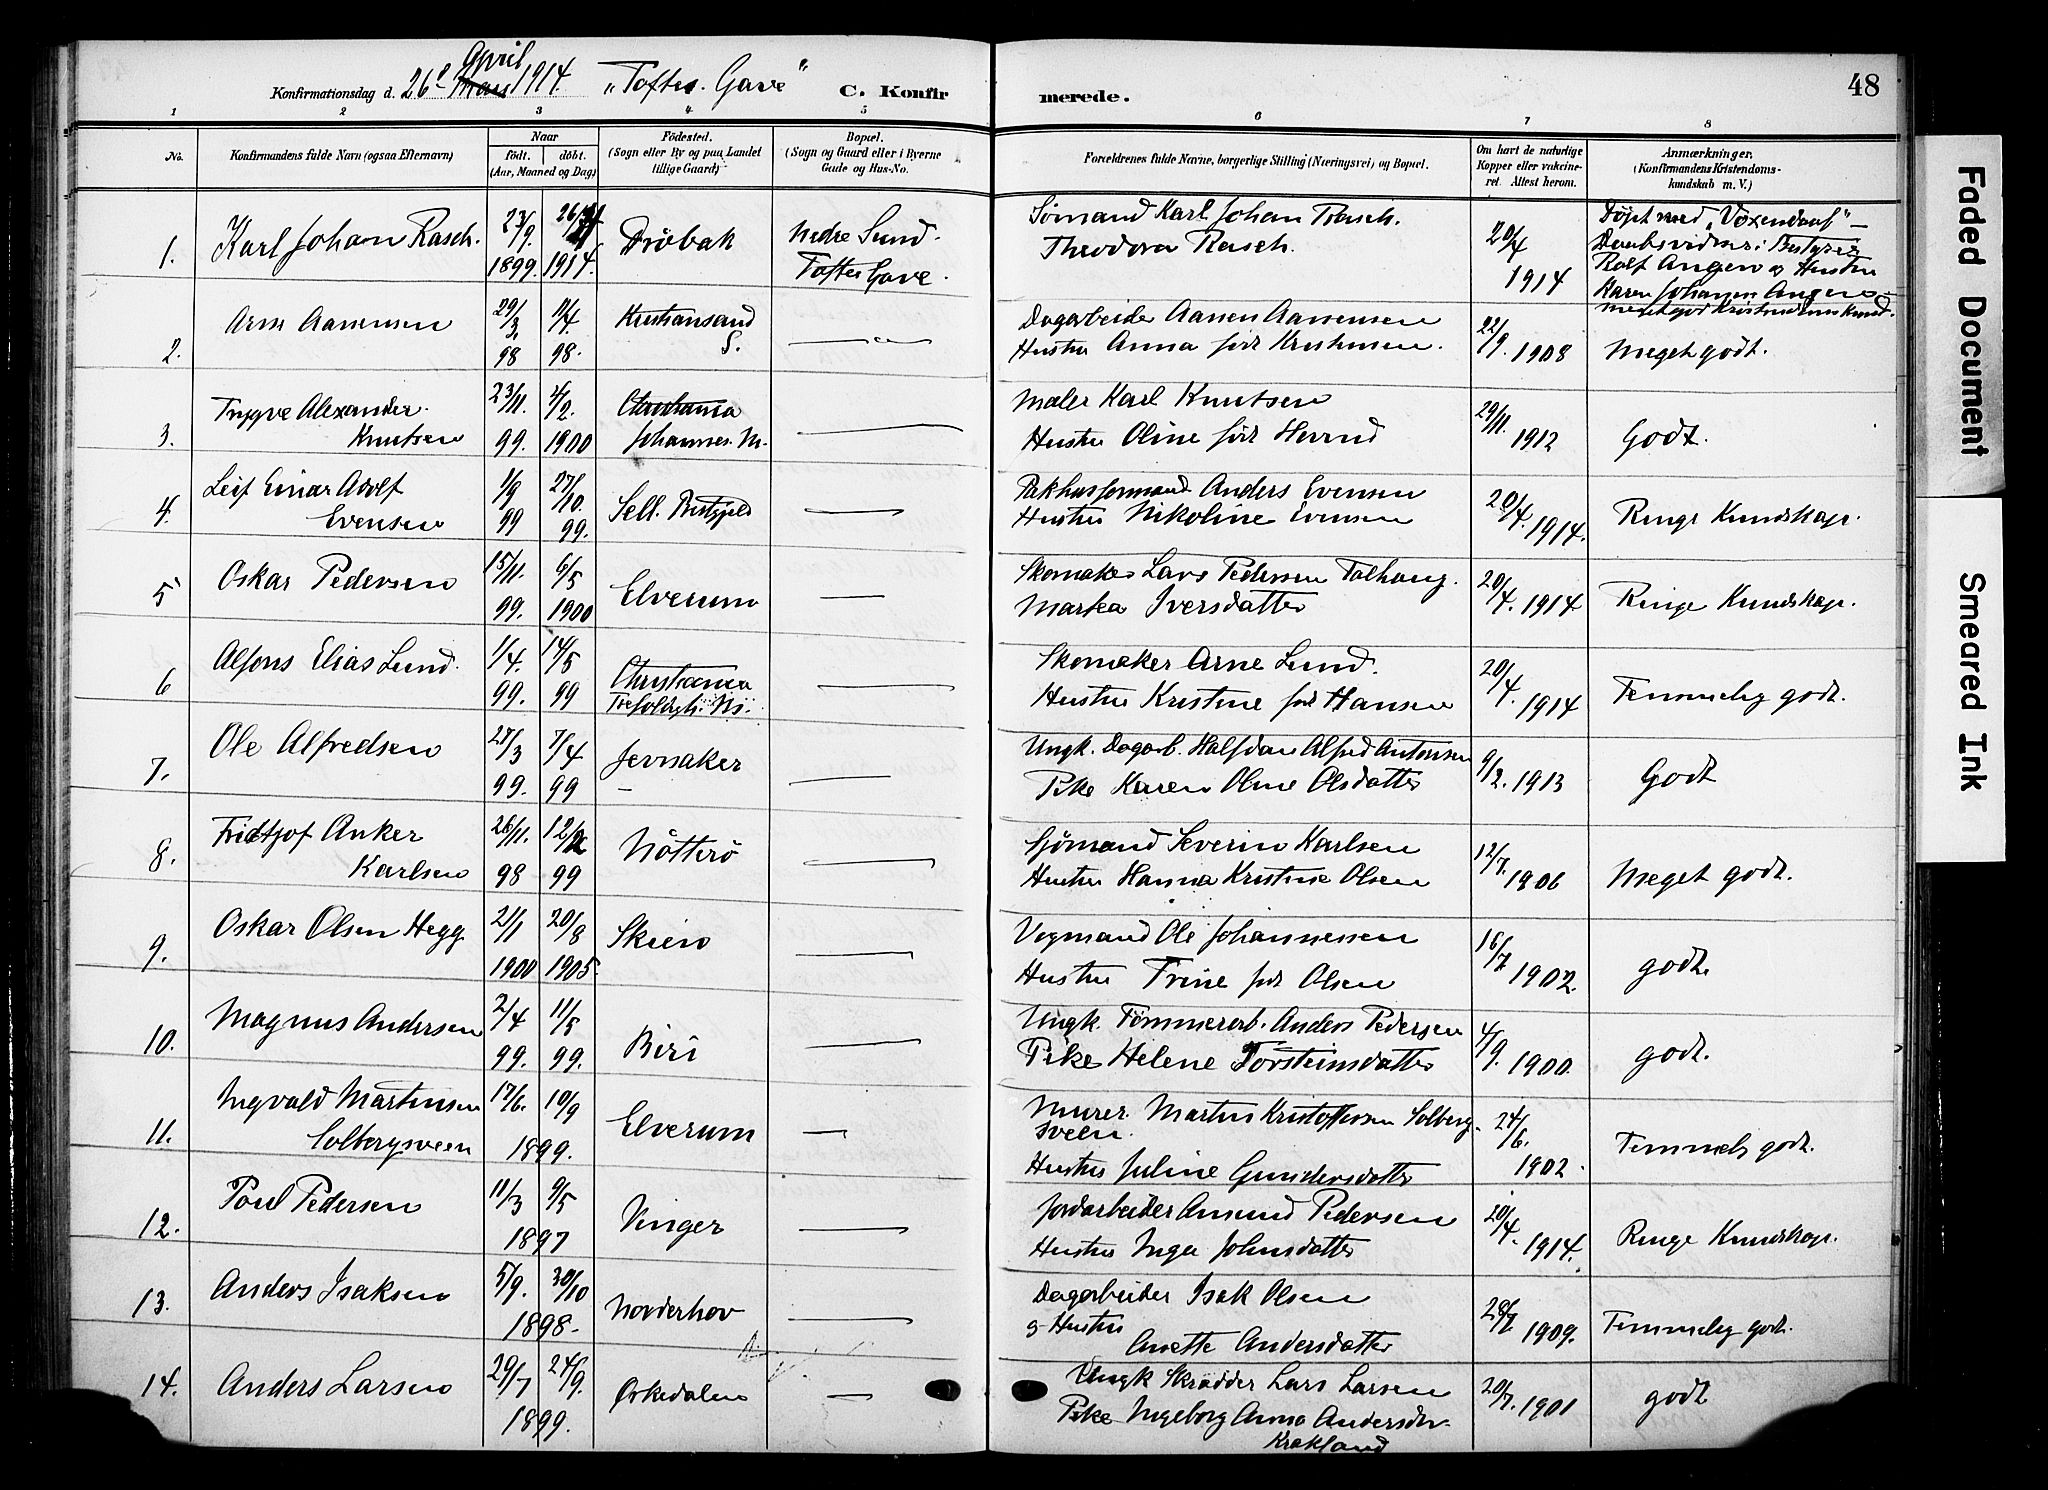 Konfirmationsdag d. 26de April 1914. "Toftes Gave" C. Konfirmerede. 48
1 2 3 4 5 6 7 8
No. Konfirmandens fulde Navn (ogsaa Efternavn) Naar født. døbt. (Aar, Maaned og Dag) Fødested. (Sogn eller By og paa Landet tillige Gaard) Bopæl. (Sogn og Gaard eller i Byerne Gade og Hus-No. Forældrenes fulde Navne, borgerlige Stilling (Næringsvei) og Bopæl. Om havt de naturlige Kopper eller vakcineret. Attest herom. Anmærkninger. (Konfirmandens Kristendomskundskab m. V.)
1. Karl Johan Rasch. 23/9. 1899. 1914. Drøbak Nedre Sund. Toftes Gave.
Sømand Karl Johan Rasch.
Theodora Rasch.
20/4 1914
Døpt med "Voxendaab" –
Daabsvidner: Bestyrer
Rolf Angen og Hustru
Karen Johanne Angen –
2. Arne Aanensen 29/3. 98 11/4. 98. Kristiansand S.
Dagarbeider Aanen Aanensen
Hustru Anna født Kristensen.
22/9. 1908 Meget godt.
3. Trygve Alexander Knutsen 23/11. 99. 4/2. 1900 Christiania Johannes. M.
Maler Karl Knutsen
Hustru Oline født
29/11. 1912 Godt.
4. Leif Einar Adolf Evensen 1/9 99 27/10. 99. Sell.
Pakhusformand Anders Evensen
Hustru Nikoline Evensen
20/4. 1914. Ringe Kundskap.
5 Oskar Pedersen 15/11. 99. 6/5 1900 Elverum
Skomaker Lars Pedersen
Martea Iversdatter
20/4. 1914 Ringe Kundskap.
6 Alfons Elias Lund. 1/4. 99. 14/5 99 Christiania
Skomaker Arne Lund.
Hustru Kristine født Hansen
20/4. 1914 Temmelig godt.
7. Ole Alfredsen 27/3 99. 7/4 99 Jevnaker
Ungk. Dagarb. Halfdan Alfred Antonsen
Pike Karen Oline Olsdatter
9/2. 1913 Godt
8. Fridtjof Anker Karlsen 26/11. 98 99 Nøtterø
Sjømand Severin Karlsen
Hustru Hanna Kristine Olsen
12/7. 1906 Meget godt.
9. Oskar Olsen Hegg 21/1 1900 20/8 1905. Skien
Vognmand Ole Johannessen
Hustru Trine født Olsen
16/7 1902. godt.
10. Magnus Andersen 2/4 99. 11/5 99. Biri
Ungk. Tømmerarb. Anders Pedersen
Pike Helene Torsteinsdatter
4/9. 1900. godt.
11. Ingvald Martinsen Solbergsveen 17/6. 10/9 1899. Elverum
Murer. Martin Kristoffersen Solberg-
sveen.
Hustru Juline Gundersdatter
24/6. 1902. Temmelig godt.
12. Poul Pedersen 11/3 9/5 1897 Vinger
Jordarbeider Amund Pedersen
Hustru Inga Johnsdatter
20/4. 1914. Ringe Kundskap.
13. Anders Isaksen 5/9. 30/10 1898. Norderhov
Dagarbeider Isak Olsen
og Hustru
Anette Andersdatter
1909. Temmelig godt.
14. Anders Larsen 29/7 24/9. 1899. Orkedalen
Ungk Skrædder Lars Larsen
Pike Ingeborg Anna Andersdtr.
Krokland
20/7. 1901 godt
Faded Document
Smeared Ink